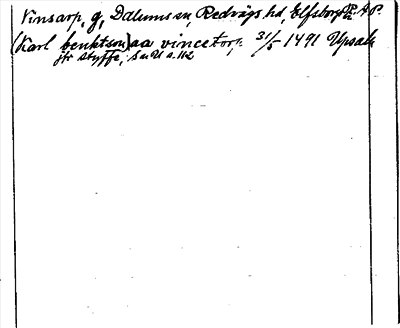 Vinsarp, g, Dalums sn, Redvägs hd, Elfsborgs l. R.A.P.
(Karl benktson) aa vincetorp 31/5 1491 Upsala
jfr Styffe, SaU a.112